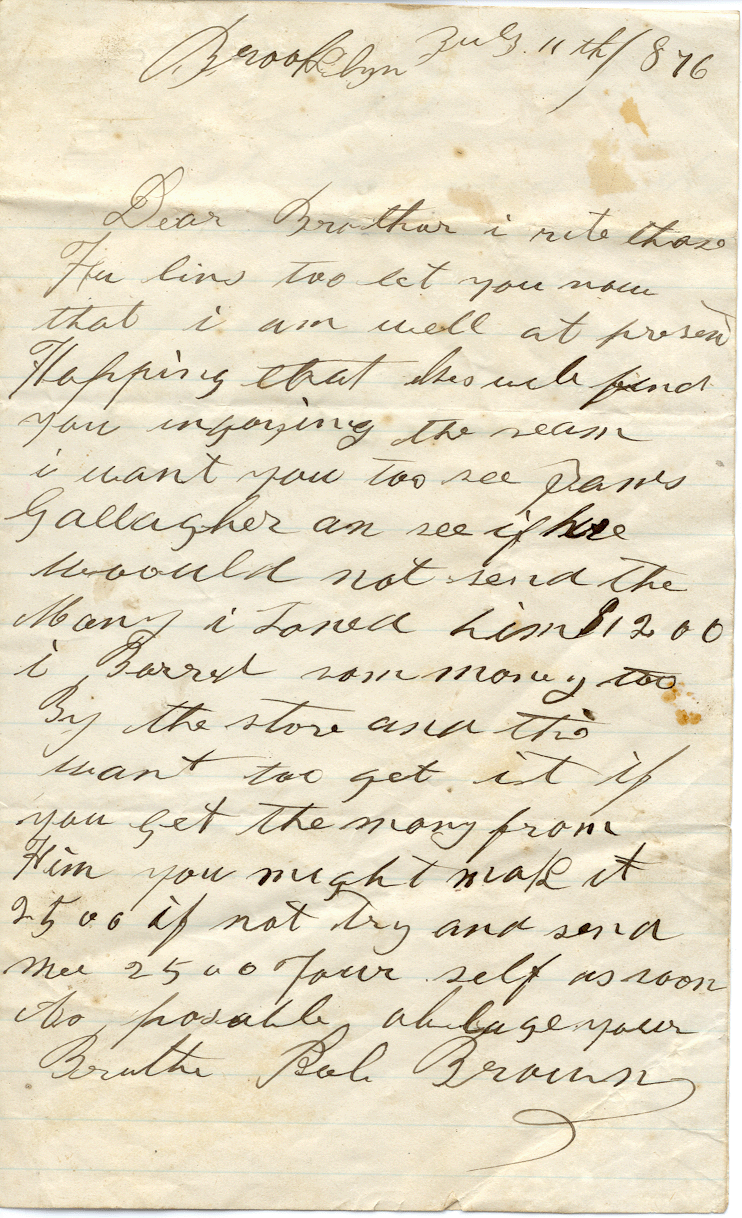 Brooklyn July 11th / 876
Dear Brother i rite those
Fu lins too let you now
that i am well at presen
Hopping that this will find
you ingoying the seam
i want you too see James
Gallagher an see if hee
woould not send the
Mony i Loned him $1200
i Borred som money too
By the store and the
want too get it if
you get the mony from
Him you might mak it
2500 if not Try and send
mee 2500 Your self as soon
As posable ablage your
Bruthe Bob Brown